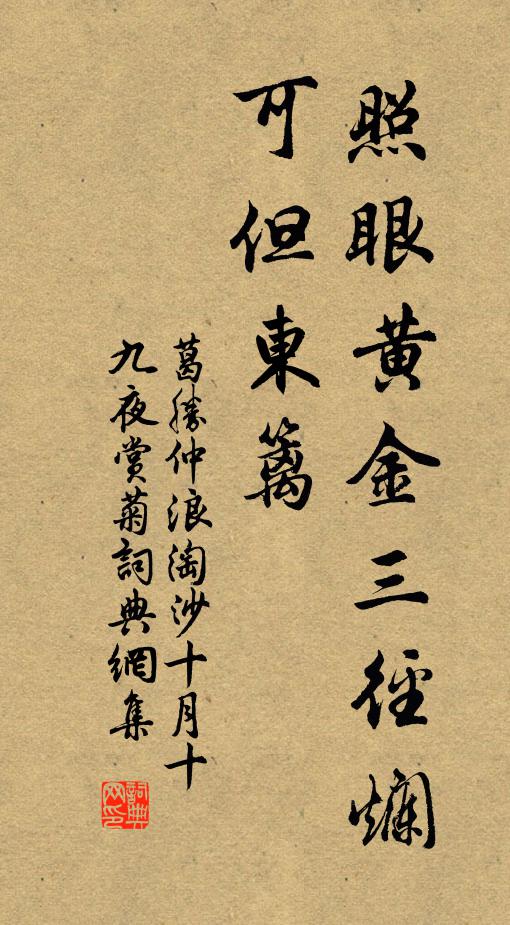 照眼黄金三徑爛
可但東籬
葛勝仲浪淘沙十月十
九夜賞菊詞典網集
詞典
网印